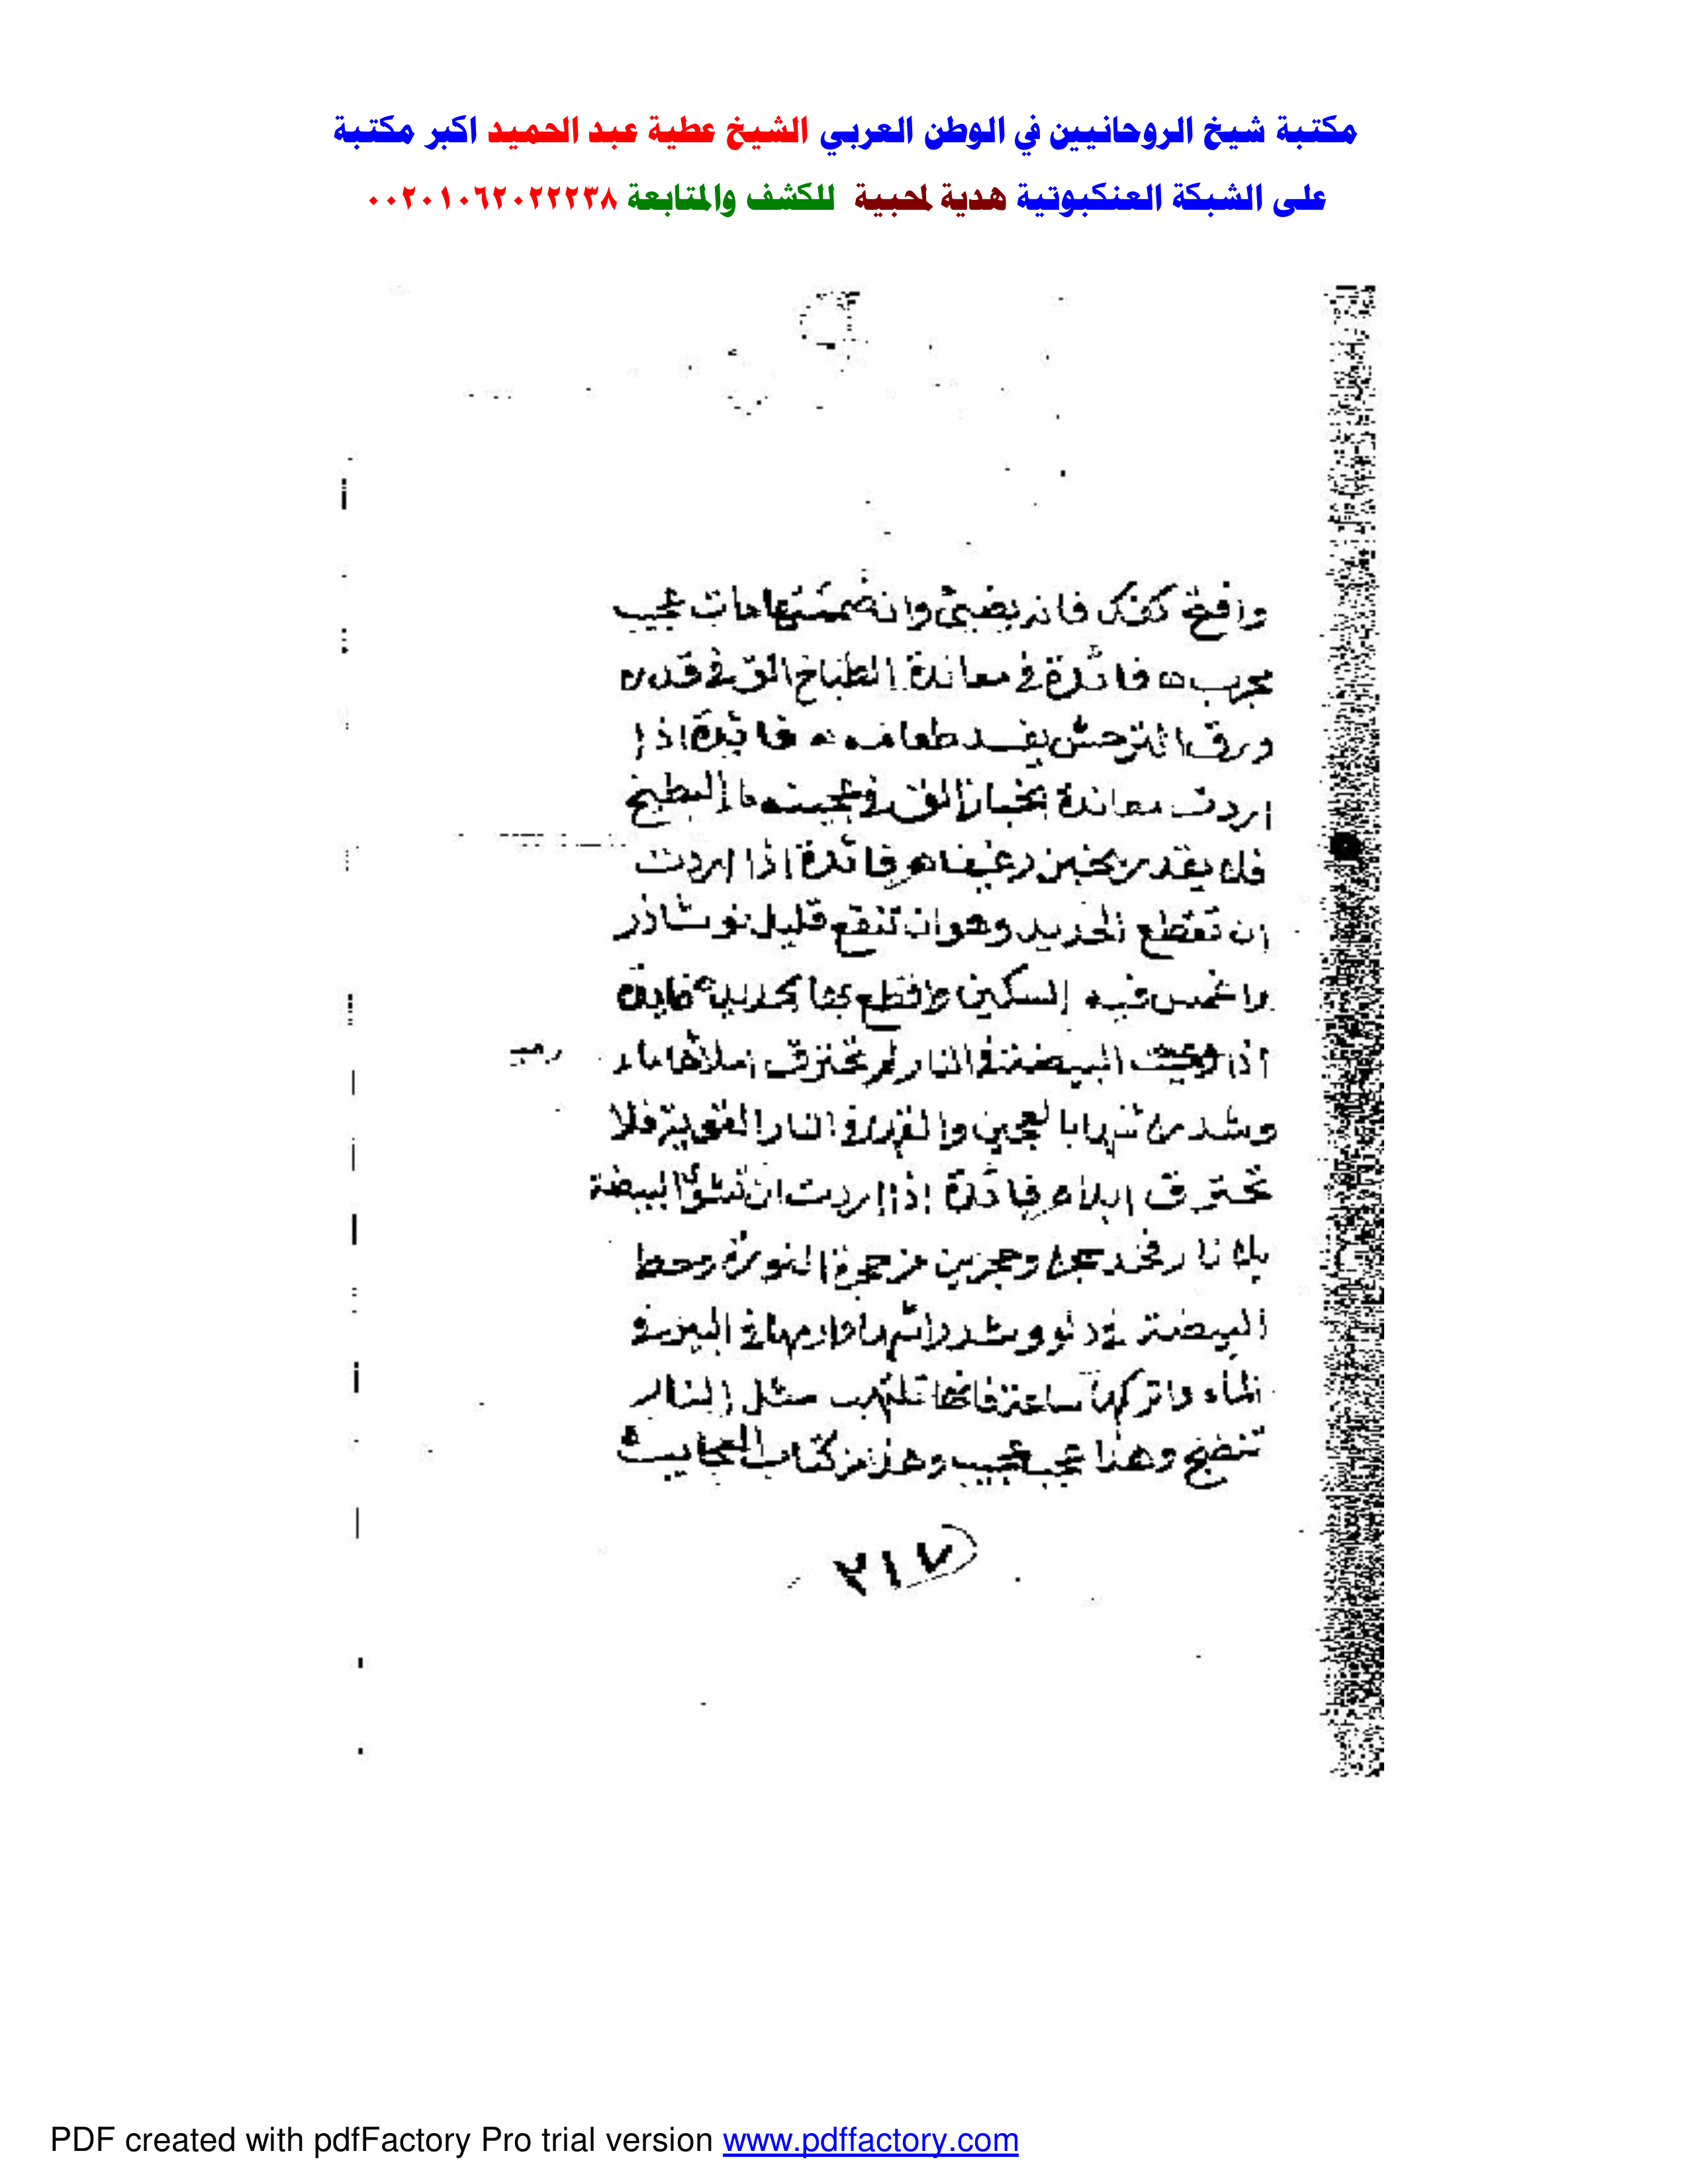 مكتبة شيخ الروحانيين في الوطن العربي الشيخ عطية عبد الحميد اكبر مكتبة
على الشبكة العنكبوتية هدية لمحبيه للكشف والمتابعة ٠٠٢٠١٠٦٢٠٢٢٢٣٨
وافتح كفك فانه يضئ وان ضممتها مات عجيب
مجرب فائدة في معاندة الطباخ الق في قدره
ورق النرجس يفسد طعامه فائدة اذا
اردت معاندة بخباز الق في عجينه ماء البطيخ
فلا يقدر يخبز رغيفا فائدة اذا اردت
ان تقطع الحديد وهو ان تنقع قليل نوشادر
واغمس فيه السكين واقطع بها الحديد فايدة
اذا البيضة في النار لم تحترق املأها ماء
وشد من ثمها بالعجين والقها في النار القوية فلا
تحترق ابدا فائدة اذا اردت ان تشوي البيضة
بلا نار فخد حجر وحجرين من حجرة النورة وحط
البيضة في دلو وشد رأسها وارمها في البير في
الماء واتركها ساعة فانها تلتهب مثل النار
تنضج وهذا عجب عجيب وهذا من كتاب العجايب
٢١٧
PDF created with pdfFactory Pro trial version www.pdffactory.com